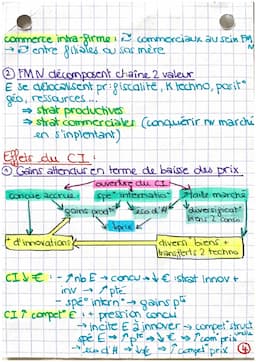 commerce intra-firme : ⇄ commerciaux au sein FMN
→ ⇄ entre filiales ou soc mère
② FMN décomposent chaîne 2 valeur
E se délocalisent pr : fiscalité, K techno, posit°
géo, ressources ...
⇒ strat productives
⇒ strat commerciales (conquérir nv marché
en s'implantant)
Effets du CI :
① Gains attendus en terme de baisse des prix
ouverture du CI
concue accrue spé° internat° ↗ taille marché
gains prod^té éco d'H diversificat°
biens 2 conso
↓prix
+ d'innovations divers biens +
transferts 2 techno
CI ↓ € : - ↗ nb E → concu → ↓ € : strat innov +
inv → ↗ pté
- spé° intern° → gains pté
CI ↑ compet° E : + pression concu
→ incite E à innover → compet° struct
spé E → ↗ pté → ↓ € → ↗ com prix
→ éco d'H → ↓ € → ↑ compet° prix
④